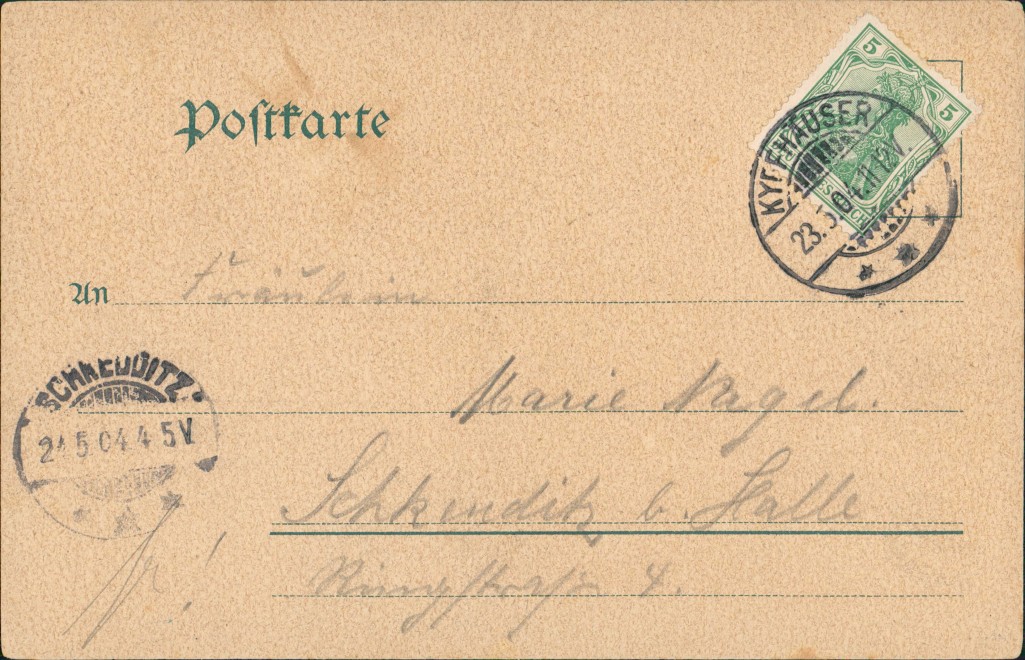 5 5
Postkarte
KYFFHÄUSER
23.5.04.11-12V.
An Fräulein
SCHKEUDITZ
Marie Nagel.
24.5.04.4-5V
Schkeuditz b. Halle
Ringstrasse 4.